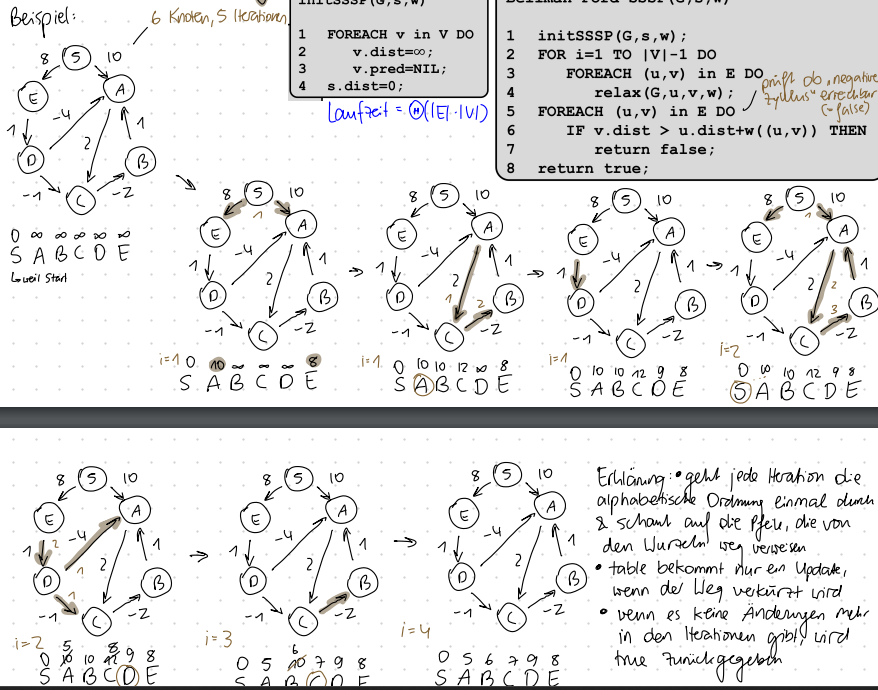 Beispiel:
6 Knoten, 5 Iterationen
initSSSP(G,s,w)
1 FOREACH v in V DO
2 v.dist=∞;
3 v.pred=NIL;
4 s.dist=0;
Laufzeit = Θ(|E|·|V|)
Bellman-Ford-SSSP(G,s,w)
1 initSSSP(G,s,w);
2 FOR i=1 TO |V|-1 DO
3 FOREACH (u,v) in E DO
4 relax(G,u,v,w);
5 FOREACH (u,v) in E DO
6 IF v.dist > u.dist+w((u,v)) THEN
7 return false;
8 return true;
prüft ob "negative
Zyklus" erreichbar
(=false)
8 S 10
E A
-4
1 2 1
D B
-1 C -2
0 ∞ ∞ ∞ ∞ ∞
S A B C D E
↳ weil Start
8 S 10
1
E A
-4
1 2 1
D B
-1 C -2
i=1 0 10 ∞ ∞ ∞ 8
S A B C D E
8 S 10
E A
-4
1 2 1
D 1 2 B
-1 C -2
i=1 0 10 10 12 ∞ 8
S A B C D E
8 S 10
E A
-4
1 2 1
D B
-1 C -2
i=1 0 10 10 12 9 8
S A B C D E
8 S 10
1
E A
-4
1 2 2 1
D 3 B
-1 C -2
i=2
0 10 10 12 9 8
S A B C D E
8 S 10
E A
1 2 -4
1 2 1
D 1 B
-1 C -2
i=2 5 8
0 10 10 12 9 8
S A B C D E
8 S 10
E A
-4
1 2 1
D B
-1 C -2
i=3 6
0 5 10 7 9 8
S A B C D E
8 S 10
E A
-4
1 2 1
D B
-1 C -2
i=4
0 5 6 7 9 8
S A B C D E
Erklärung: • geht jede Iteration die
alphabetische Ordnung einmal durch
& schaut auf die Pfeile, die von
den Wurzeln weg verweisen
• table bekommt nur ein Update,
wenn der Weg verkürzt wird
• wenn es keine Änderungen mehr
in den Iterationen gibt, wird
true zurückgegeben